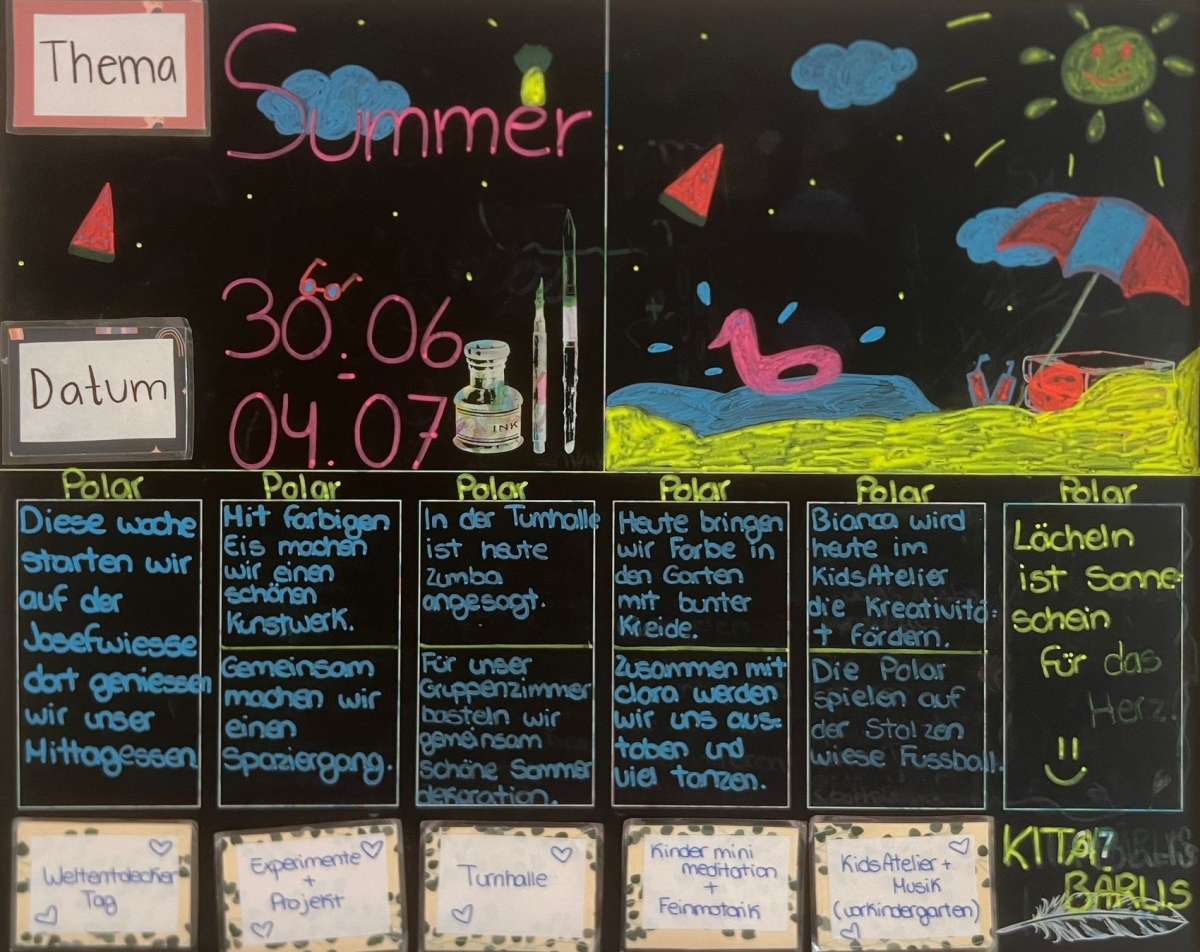 Thema
Summer
Datum
30.06
-
04.07
INK
Polar
Diese woche
starten wir
auf der
Josefwiesse
dort geniessen
wir unser
Mittagessen
Polar
Mit farbigen
Eis machen
wir einen
schönen
Kunstwerk.
Gemeinsam
machen wir
einen
Spaziergang.
Polar
In der Turnhalle
ist heute
Zumba
angesagt.
Für unser
Gruppenzimmer
basteln wir
gemeinsam
schöne Sommer
dekoration.
Polar
Heute bringen
wir Farbe in
den Garten
mit bunter
Kreide.
Zusammen mit
clara werden
wir uns aus-
toben und
viel tanzen.
Polar
Bianca wird
heute im
KidsAtelier
die Kreativitä-
t fördern.
Die Polar
spielen auf
der Stolzen
wiese Fussball.
Polar
Lächeln
ist Sonne-
schein
für das
Herz!
Weltentdecker
Tag
Experimente
+
Projekt
Turnhalle
Kinder mini
meditation
+
Feinmotorik
KidsAtelier +
Musik
(vorkindergarten)
KITA
BÄRLIS